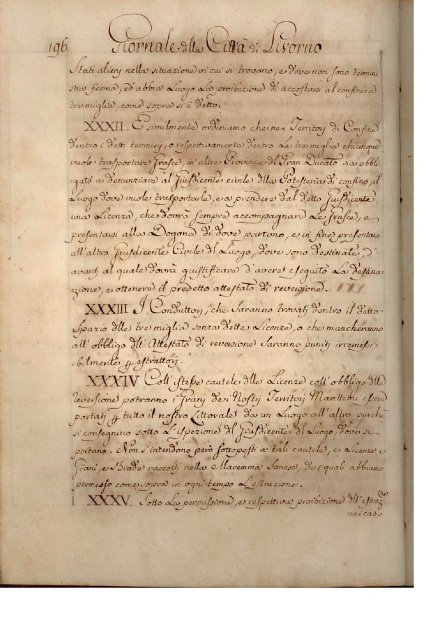 196. Giornale della Città di Livorno
Stati alieni nella situazione in cui si trovano, e dove non sono termini
stia ferma, ed abbia Luogo La proibizione di accostarsi al confine a
tre miglia, come sopra si è detto.
XXXII. E similmente ordiniamo che nei Territorj di Confine
dentro i detti termini, o respettivamente dentro Le tre miglia chiunque
vuole trasportare frasce in altre Provincie del Gran Ducato sia obbli-
gato a denunziare al Jusdicente civile della Potesteria di confino, il
Luogo dove vuole trasportarle, e a prendere dal detto Jusdicente
una Licenza, che dovrà sempre accompagnare Le frasce, e
presentarsi alla Dogana di dove partono, e in fine presentarsi
all'altro Jusdicente Civile del Luogo, dove sono destinate, d'
avanti al quale dovrà giustificare d'avere eseguito La destina-
zione, e ottenere il predetto attestato di reversione.
XXXIII. I Conduttori, che saranno trovati dentro il detto
Spazio delle tre miglia senza dette Licenze, o che mancheranno
all'obbligo dell'Attestato di reversione Saranno puniti irremissi-
bilmente p estrattori.
XXXIV Coll'istesse cautele delle Licenze coll'obbligo della
reversione potranno i Grani dei Nostri Territorj Marittimi essere
portati p tutto il nostro Littorale da un Luogo all'altro purchè
si consegnino sotto L'ispezione del Jusdicente del Luogo, dove si
portano. Non s'intendono però sottoposti a tali cautele, e Licenze i
Grani, e Biade raccolti nella Maremma Sanese, dei quali abbiamo
permesso come sopra in ogni tempo L'estrazione.
XXXV. Sotto La permissione, e respettiva proibizione dell'estraz.ne